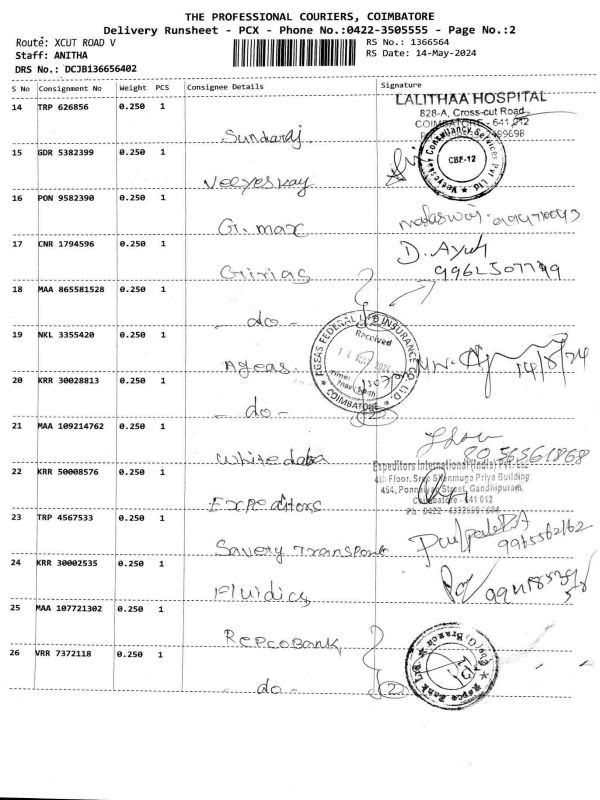 THE PROFESSIONAL COURIERS, COIMBATORE
Delivery Runsheet - PCX - Phone No.:0422-3505555 - Page No.:2
Route: XCUT ROAD V
RS No.: 1366564
Staff: ANITHA
RS Date: 14-May-2024
DRS No.: DCJB136656402
S No Consignment No Weight PCS Consignee Details Signature
14 TRP 626856 0.250 1 Sundaraj
LALITHAA HOSPITAL
828-A, Cross-cut Road
COIMBATORE - 641 012
15 GDR 5382399 0.250 1 Veeyeskay
Veeyeskay Consultancy Services Pvt Ltd
CBE-12
16 PON 9582390 0.250 1 G. max
17 CNR 1794596 0.250 1 Girias
D. Ayuh
9962507799
18 MAA 865581528 0.250 1 - do -
19 NKL 3355420 0.250 1 Ageas
AGEAS FEDERAL LIFE INSURANCE CO. LTD.
Received
14 MAY 2024
Time:
COIMBATORE
14/5/24
20 KRR 30028813 0.250 1 - do - 2
21 MAA 109214762 0.250 1 whitedata
22 KRR 50008576 0.250 1 Expeditors
Expeditors International (India) Pvt. Ltd
4th Floor, Sree Shanmuga Priya Building
454, Ponnaiyan Street, Gandhipuram,
Coimbatore - 641 012
23 TRP 4567533 0.250 1 Savery Transport
9965562162
24 KRR 30002535 0.250 1 Fluidics
25 MAA 107721302 0.250 1 RepcoBank
Repco Bank Ltd
26 VRR 7372118 0.250 1 - do - 2